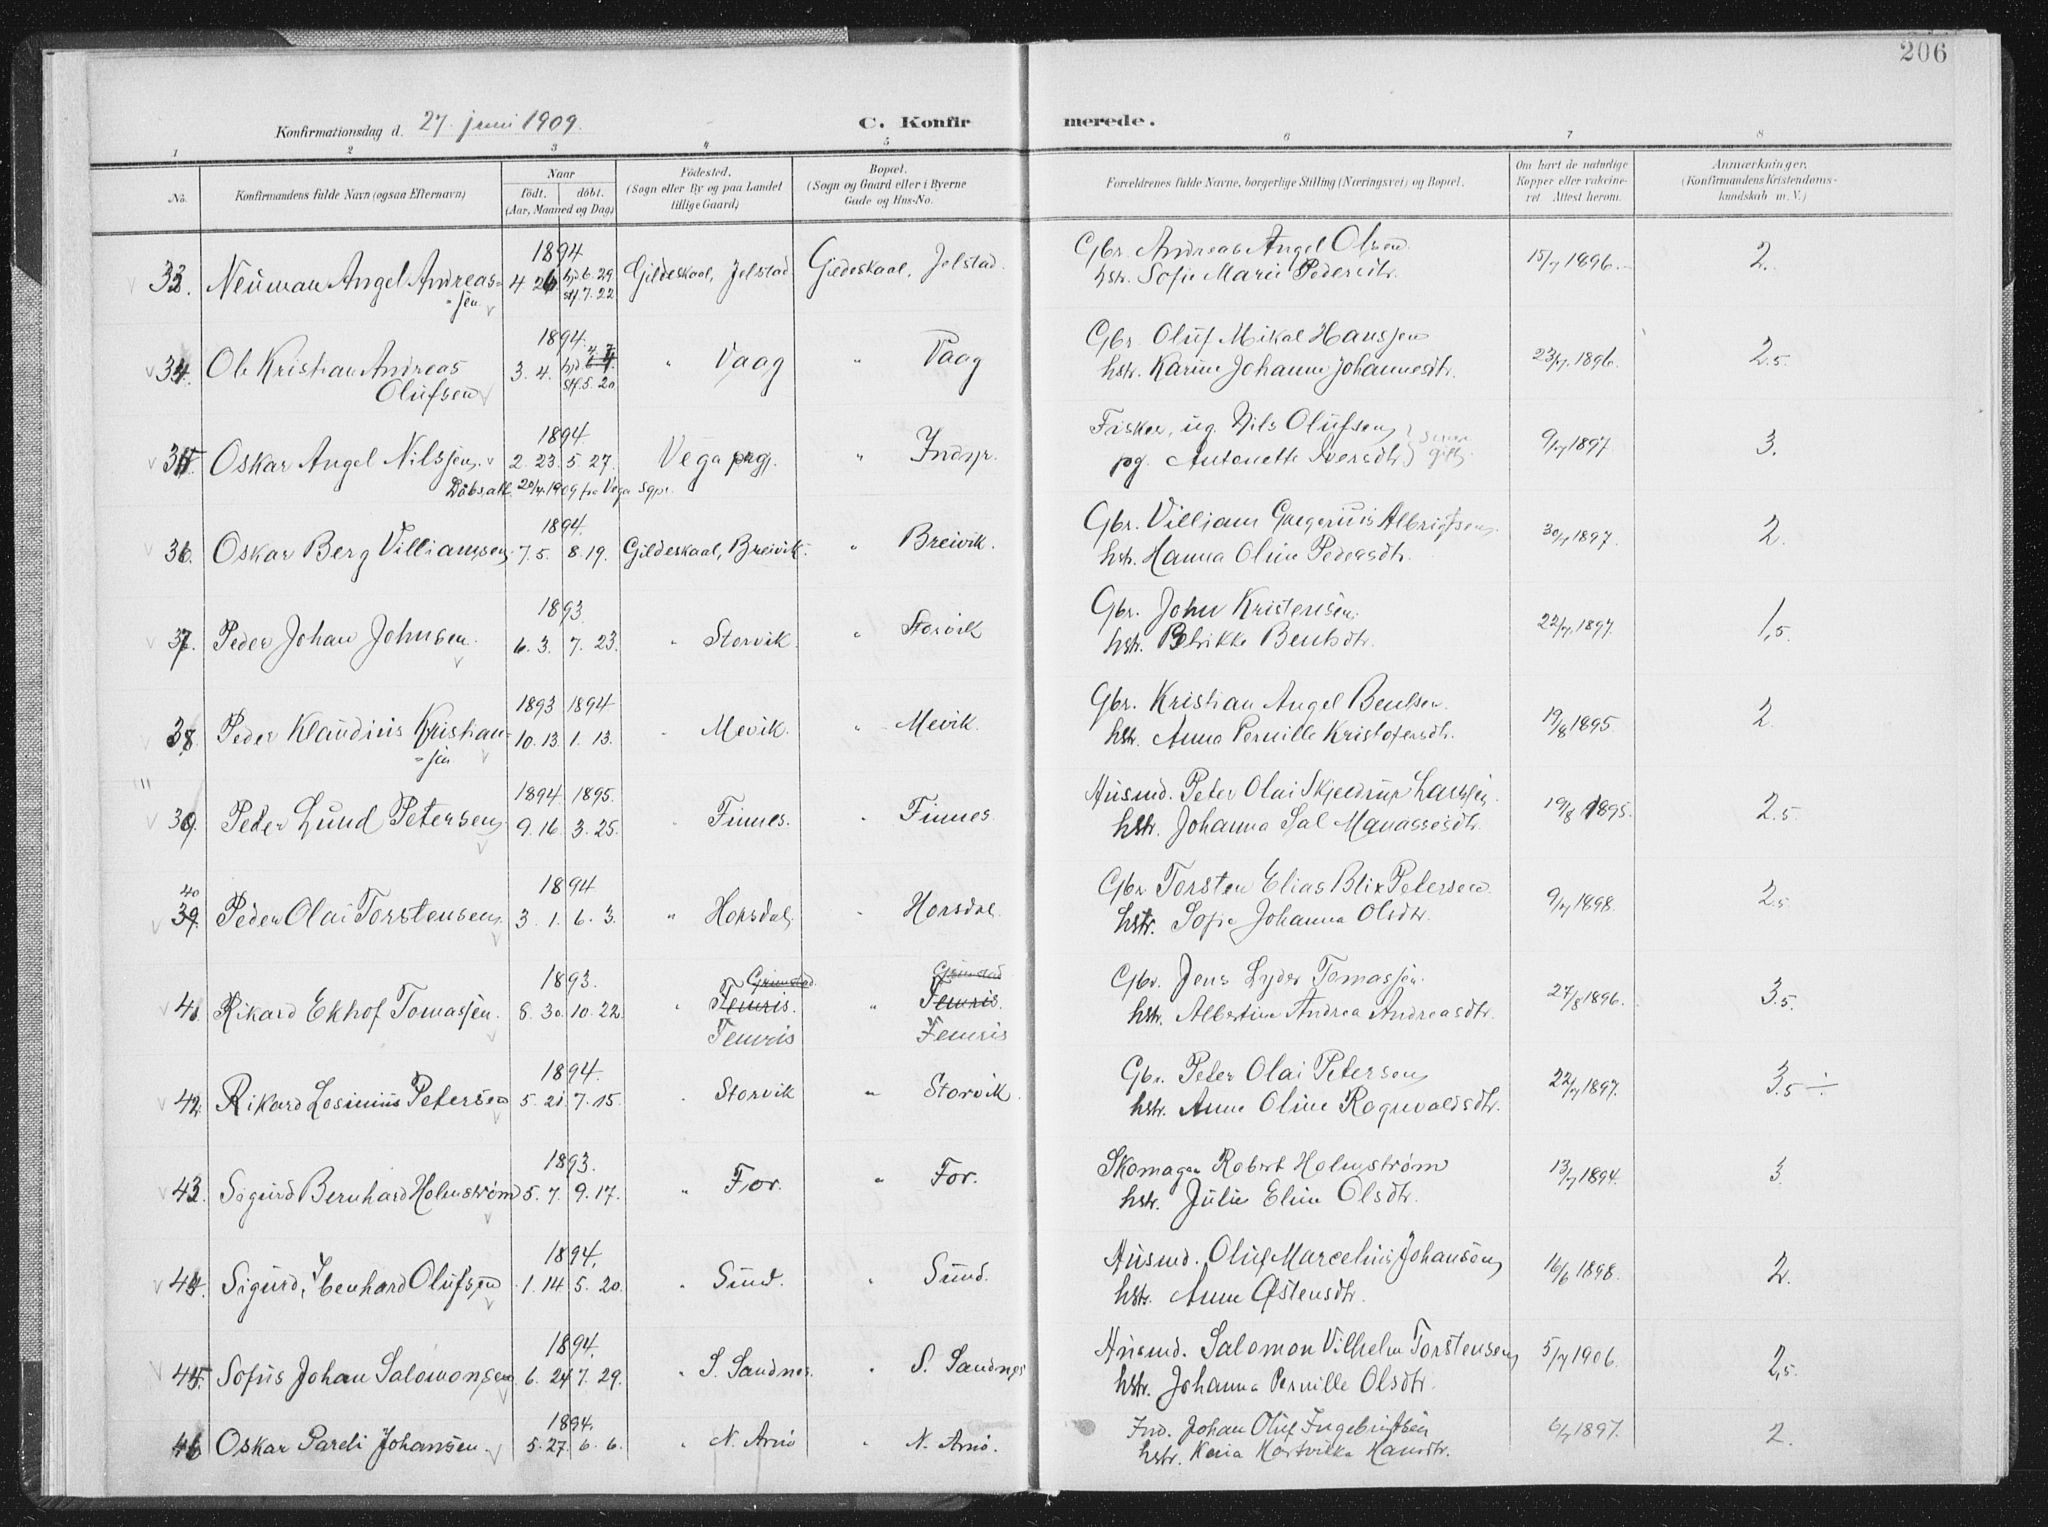 206
Konfirmationsdag d. 27. juni 1909. C. Konfir merede.
1 2 3 4 5 6 7 8
No. Konfirmandens fulde Navn (ogsaa Efternavn) Naar födt. döbt. (Aar, Maaned og Dag) Födested. (Sogn eller By og paa Landet tillige Gaard) Bopæl. (Sogn og Gaard eller i Byerne Gade og Hus-No. Forældrenes fulde Navne, borgerlige Stilling (Næringsvei) og Bopæl. Om havt de naturlige Kopper eller vakcineret Attest herom. Anmærkninger. (Konfirmandens Kristendomskundskab m. V.)
1894 Gbr. Andreas Angel Olsen
33. Neuman Angel Andreas- 4 26 hjd 6. 29 Gildeskaal, Jelstad Gildeskaal, Jelstad. hstr. Sofie Marie Pedersdtr. 15/7 1896. 2.
=sen stf. 7. 22
1894. Gbr. Oluf Mikal Hanssen
34. Ole Kristian Andreas 3. 4. hjd 4. 7 " Vaag " Vaag hstr. Karine Johanne Johannesdtr. 23/7 1896. 2.5.
Olufsen stf. 5. 20
1894 Fisker, ug. Nils Olufsen
35. Oskar Angel Nilssen. 2. 23. 5. 27. Vega prgj. " Indyr. pg. Antonette Iversdtr. senere gift 9/7 1897. 3.
Døbsatt. 20/4 1909 fra Vega Sgpr.
1894. Gbr. Villiam Gregerius Albrigtsen
36. Oskar Berg Villiamsen 7. 5. 8. 19. Gildeskaal, Breivik. " Breivik. hstr. Hanna Oline Pedersdtr. 30/7 1897. 2.
1893 Gbr. John Kristensen.
37. Peder Johan Johnsen. 6. 3. 7. 23. " Storvik. " Storvik hstr. Bentsdtr. 22/7 1897. 1,5.
1893 1894 Gbr. Kristian Angel Bentsen.
38. Peder Klaudius Kristian- 10. 13. 1. 13. " Mevik. " Mevik. hstr. Anna Pernille Kristofersdtr. 19/8 1895. 2.
=sen
1894. 1895. Husmd. Peter Olai Skjeldrup Larssen.
39. Peder Lund Petersen 9. 16 3. 25. " Finnes. " Finnes. hstr. Johanna Sal Manassesdtr. 19/8 1895. 2.5.
40 1894 Gbr. Torsten Elias Blix Petersen
39. Peder Olai Torstensen 3. 1. 6. 3. " Horsdal " Horsdal. hstr. Sofie Johanna Olsdtr. 9/7 1898. 2.5.
1893. Grimstad Grimstad Gbr. Jens Lyder Tomassen.
41. Rikard Ekhof Tomassen. 8. 30. 10. 22. " Femris. " Femris. hstr. Albertine Andrea Andreasdtr. 27/8 1896. 3.5.
Femris Femris
1894. Gbr. Peter Olai Petersen
42. Rikard Losinius Petersen 5. 21. 7. 15. " Storvik " Storvik. hstr. Anne Oline Rognvaldsdtr. 22/7 1897. 3.5 ÷.
1893. Skomager Robert Holmstrøm
43. Sigurd Bernhard Holmstrøm 5. 7. 9. 17. " For. " For. hstr. Julie Eline Olsdtr. 13/7 1894. 3.
1894. Husmd. Oluf Marcelius Johansen
44. Sigurd, Olufsen 1. 14. 5. 20. " Sund. " Sund. hstr. Anne Østensdtr. 16/6 1898. 2.
1894. Husmd. Salomon Vilhelm Torstensen
45. Sofus Johan Salomonsen 6. 24 7. 29. " S. Sandnes. " S. Sandnes hstr. Johanna Pernille Olsdtr. 5/7 1906. 2,5.
1894. Ind. Johan Oluf Ingebrigtsen
46 Oskar Pareli Johansen. 5. 27. 6. 6. " N. Arnø " N. Arnø. hstr. Hansdtr. 6/7 1897. 2.